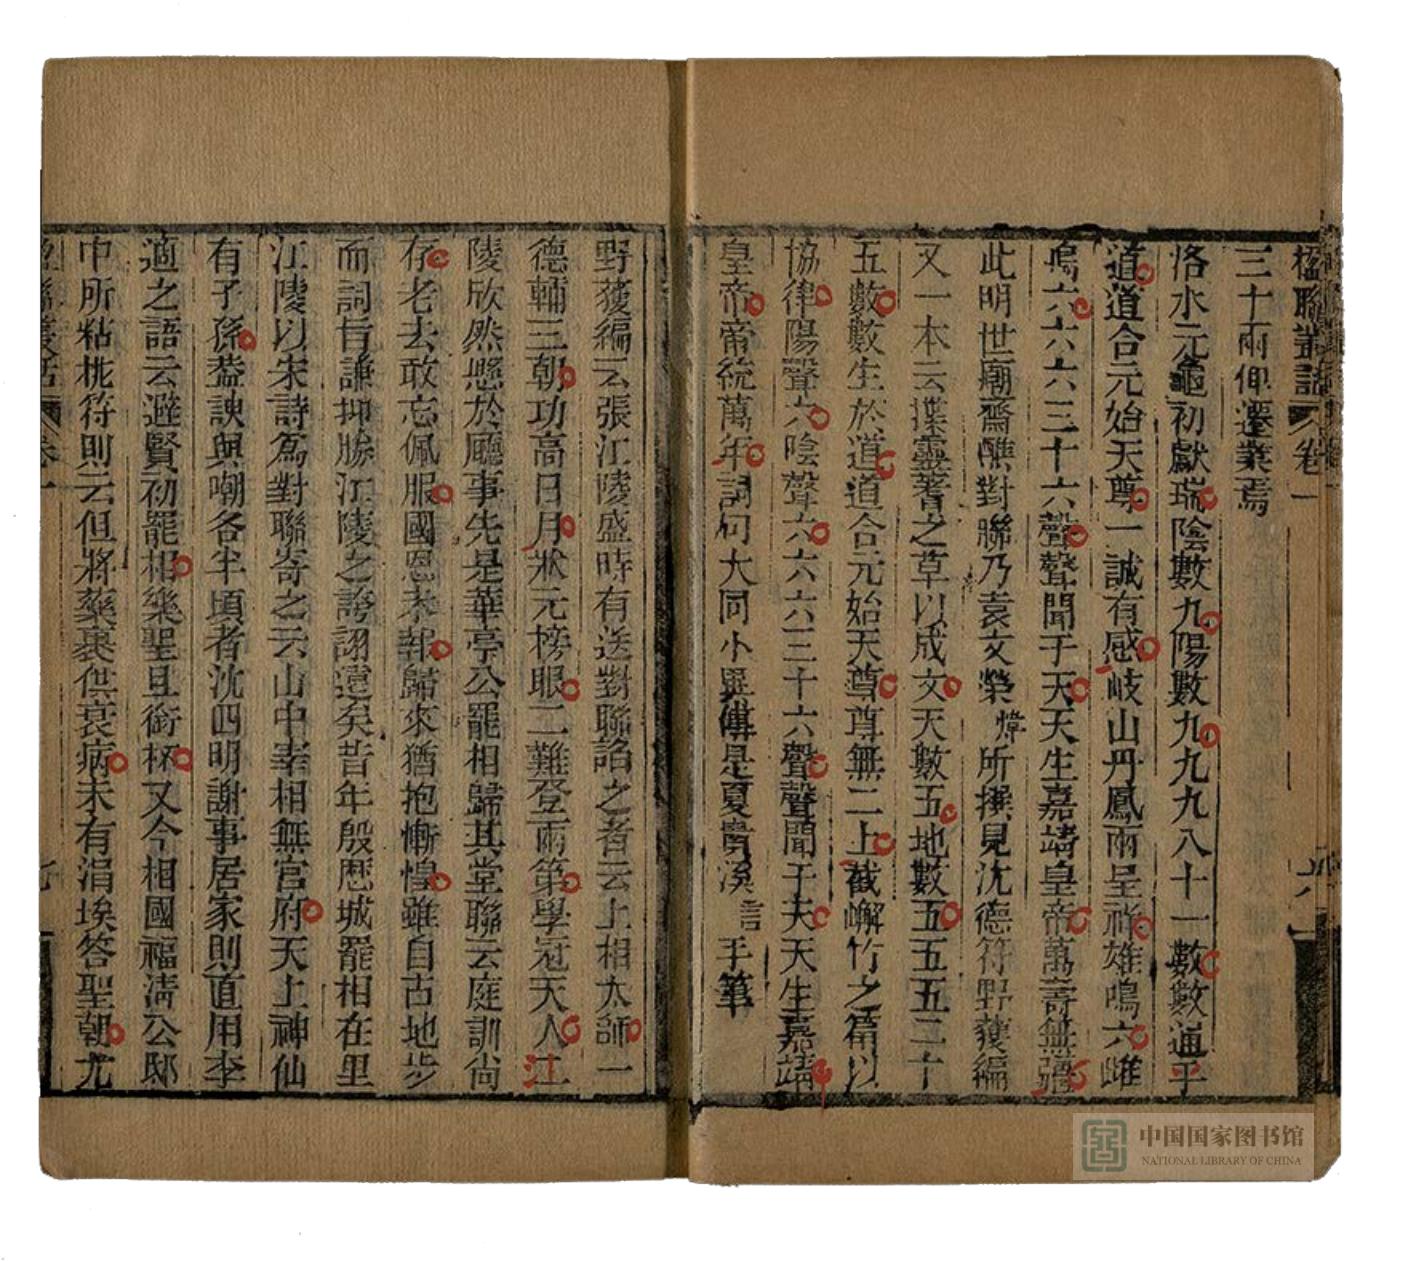 楹聯叢話 卷一
三十兩俾遷業焉
洛水元龜初獻瑞陰數九陽數九九九八十一數數通乎
道道合元始天尊一誠有感岐山丹鳳兩呈祥雄鳴六雌
鳴六六六三十六聲聲聞于天天生嘉靖皇帝萬壽無疆
此明世廟齋醮對聯乃袁文榮煒所撰見沈德符野獲編
又一本云揲靈蓍之草以成文天數五地數五五五二十
五數數生於道道合元始天尊尊無二上截嶰竹之筩以
協律陽聲六陰聲六六六三十六聲聲聞于天天生嘉靖
皇帝帝統萬年詞句大同小異傳是夏貴溪言手筆
野獲編云張江陵盛時有送對聯諂之者云上相太師一
德輔三朝功高日月狀元榜眼二難登兩第學冠天人江
陵欣然懸於廳事先是華亭公罷相歸其堂聯云庭訓尚
存老去敢忘佩服國恩未報歸來猶抱慚惶雖自古地步
而詞旨謙抑勝江陵之誇詡遠矣昔年殷歷城罷相在里
江陵以宋詩爲對聯寄之云山中宰相無官府天上神仙
有子孫葢諛與嘲各半頃者沈四明謝事居家則直用李
適之語云避賢初罷相樂聖且銜杯又今相國福清公邸
中所粘桃符則云但將藥裹供衰病未有涓埃答聖朝尤
中国国家图书馆
NATIONAL LIBRARY OF CHINA